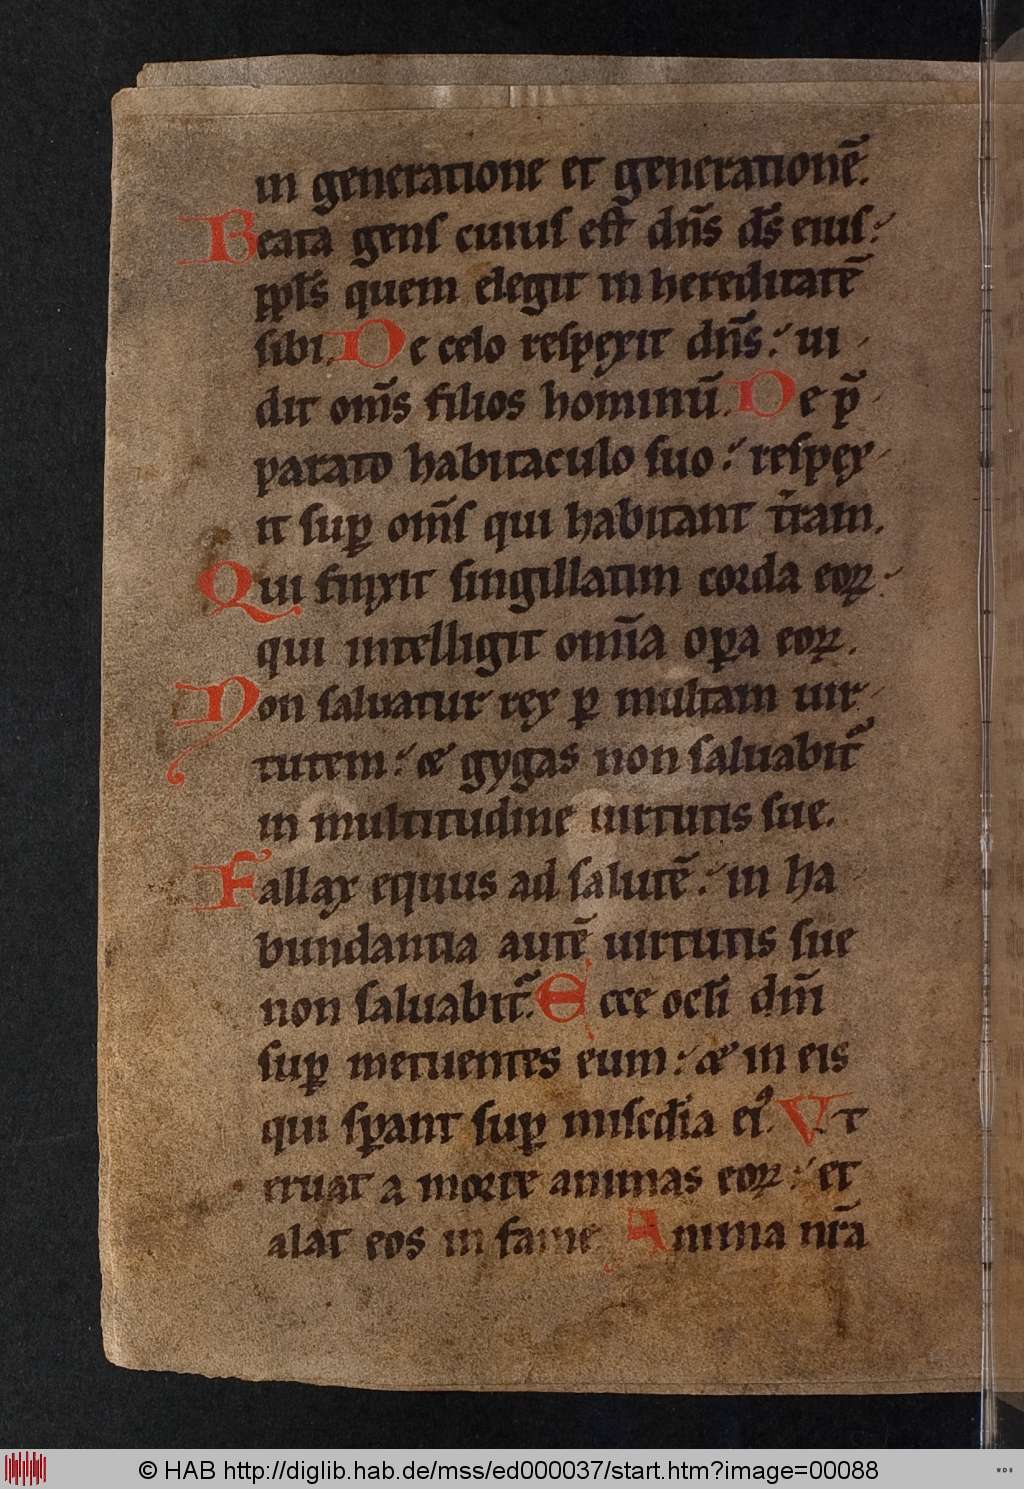 in generatione et generationē.
Beata gens cuius est dn̄s ds̄ eius:
ppls̄ quem elegit in hereditatē
sibi. De celo respexit dn̄s: ui
dit om̄s filios hominū. De p̄
parato habitaculo suo: respex
it suꝑ om̄s qui habitant t̄ram.
Qui finxit singillatim corda eoꝝ
qui intelligit om̄ia oꝑa eoꝝ.
Non saluatur rex ꝑ multam uir
tutem: & gygas non saluabit᷑
in multitudine uirtutis sue.
Fallax equus ad salutē: in ha
bundantia autē uirtutis sue
non saluabit᷑. Ecce ocl̄i dn̄i
suꝑ metuentes eum: & in eis
qui sꝑant suꝑ misc̄dia eiꝰ. Vt
eruat a morte animas eoꝝ: et
alat eos in fame Anima nr̄a
© HAB http://diglib.hab.de/mss/ed000037/start.htm?image=00088